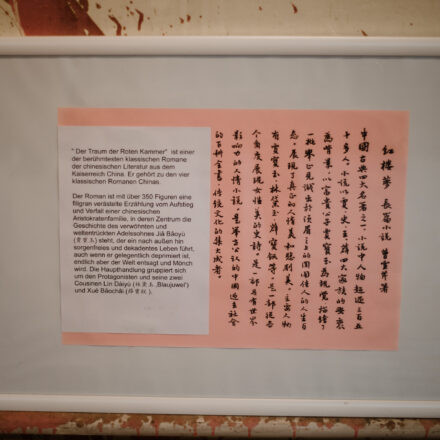 " Der Traum der Roten Kammer" ist einer
der berühmtesten klassischen Romane
der chinesischen Literatur aus dem
Kaiserreich China. Er gehört zu den vier
klassischen Romanen Chinas.
Der Roman ist mit über 350 Figuren eine
filigran verästelte Erzählung vom Aufstieg
und Verfall einer chinesischen
Aristokratenfamilie, in deren Zentrum die
Geschichte des verwöhnten und
weltentrückten Adelssohnes Jiǎ Bǎoyù
(賈寶玉) steht, der ein nach außen hin
sorgenfreies und dekadentes Leben führt,
auch wenn er gelegentlich deprimiert ist,
endlich aber der Welt entsagt und Mönch
wird. Die Haupthandlung gruppiert sich
um den Protagonisten und seine zwei
Cousinen Lín Dàiyù (林黛玉 „Blaujuwel")
und Xuē Bǎochāi (薛寶釵).
红樓夢 長篇小说 曹雪芹著
中國古典四大名著之一,小说中人物超过三百五
十多人,小说以贾史王薛四大家族的兴衰
為背景,以富貴公子賈宝玉為视觉描繪了
一批举止見識出於须眉之上的閨閣佳人的人生百
态,展现了真正的人情美和悲剧美,主要人物
有賈宝玉,林黛玉,薛宝釵等,是一部从各
个角度展现女性美的史诗,是一部具有世界
影响力的人情小说,是举世公认的中國近古社会
的百科全書,传统文化的集大成者。